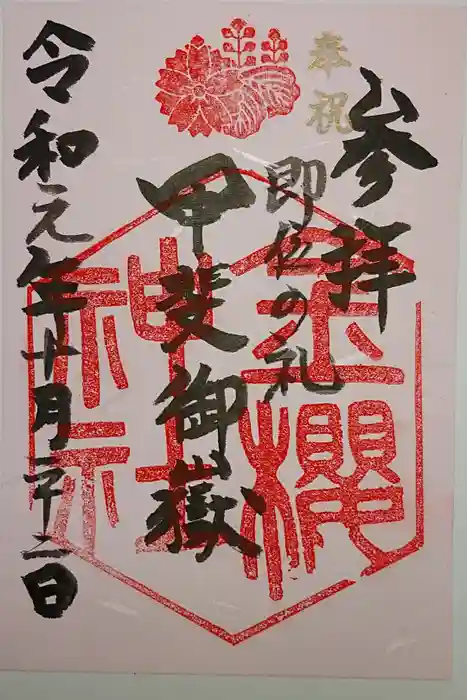 奉祝
参拝
即位の礼
甲斐御嶽
金櫻
神社
令和元年十月二十二日